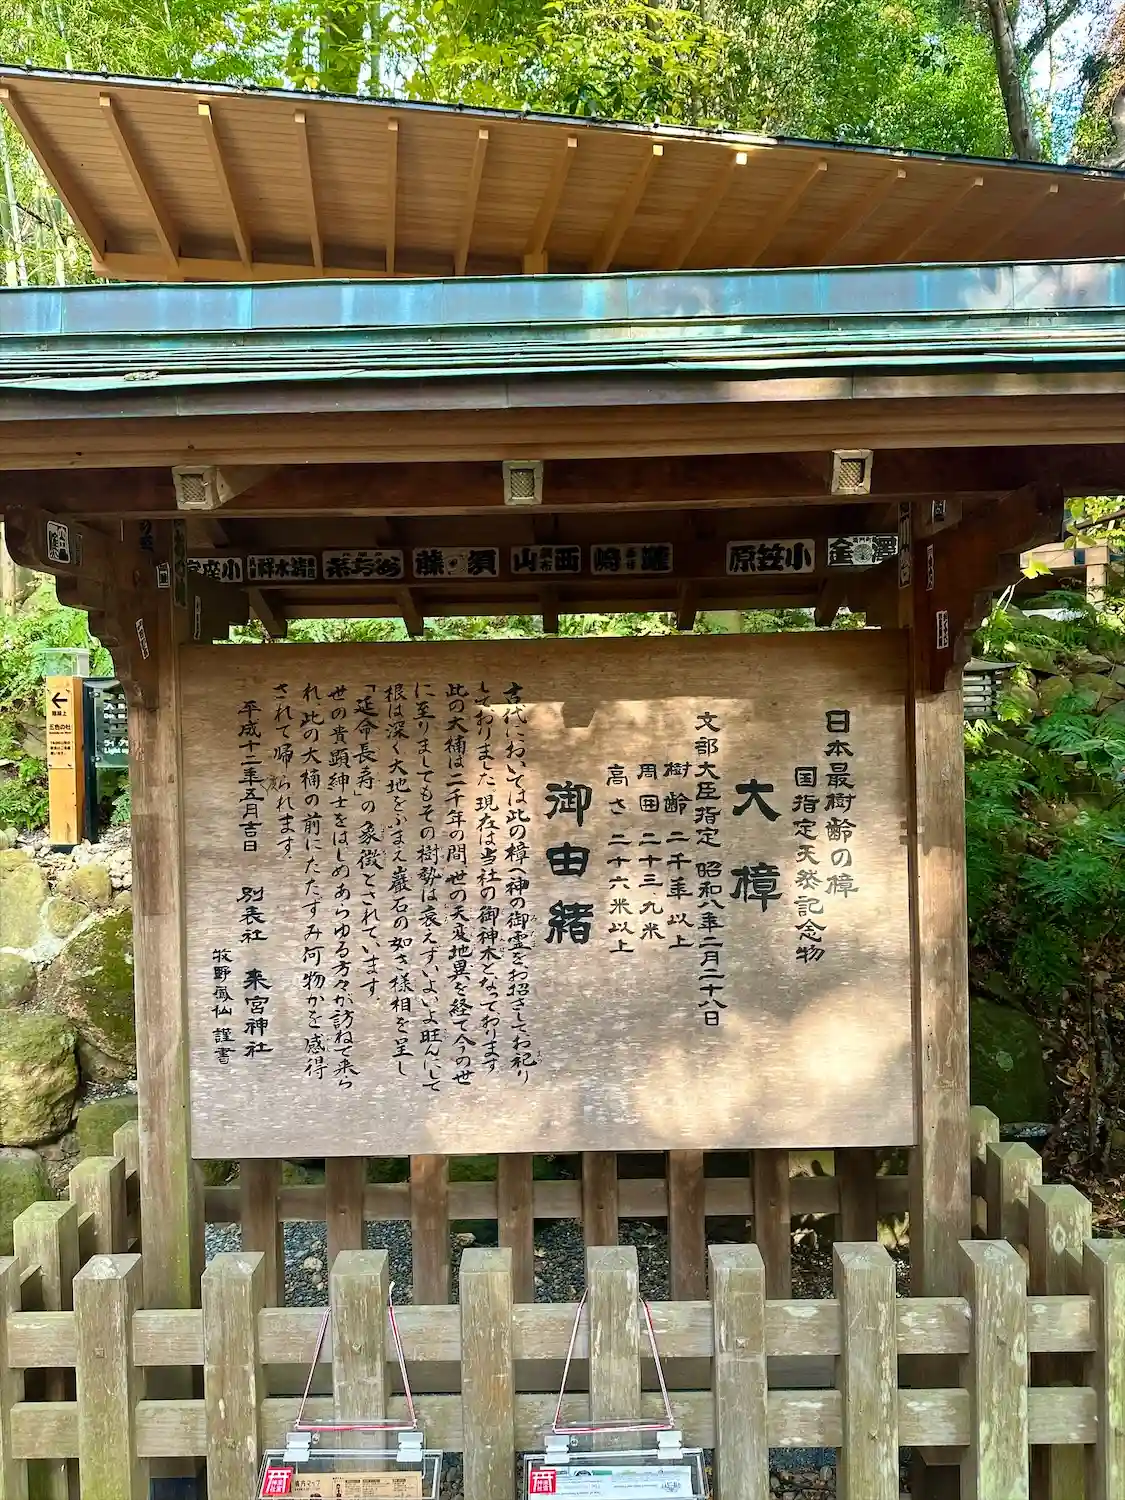 日本最樹齢の樟
国指定天然記念物
大樟
文部大臣指定 昭和八年二月二十八日
樹齢 二千年以上
周囲 二十三九米
高さ 二十六米以上
御由緒
古代においては此の樟へ神の御霊をお招きしてお祀り
しておりました 現在は当社の御神木となっております
此の大楠は二千年の間世の天変地異を経て今の世
に至りましてもその樹勢は衰えずいよいよ旺んにして
根は深く大地をふまえ巌石の如き様相を呈し
「延命長寿」の象徴とされています
世の貴顕紳士をはじめあらゆる方々が訪ねて来ら
れ 此の大楠の前にたたずみ何物かを感得
されて帰られます.
平成十二年五月吉日 別表社 来宮神社
牧野 仙 謹書
小笠原
須藤
西山
清水祥
小座
五色の杜